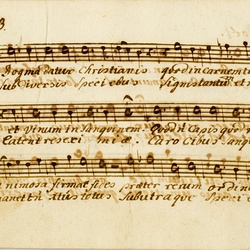 3.
Dogma datur Christianis quod in Carnem t
Sub diversis Speciebus Signis tantum et n
et Vinum in Sanguinem. Quod n Capis quod n
Latent res exi miæ. Caro Cibus Sangu
nimosa firmat fides præter rerum ordin
manet tn Xtus totus Sub utraque Speci e